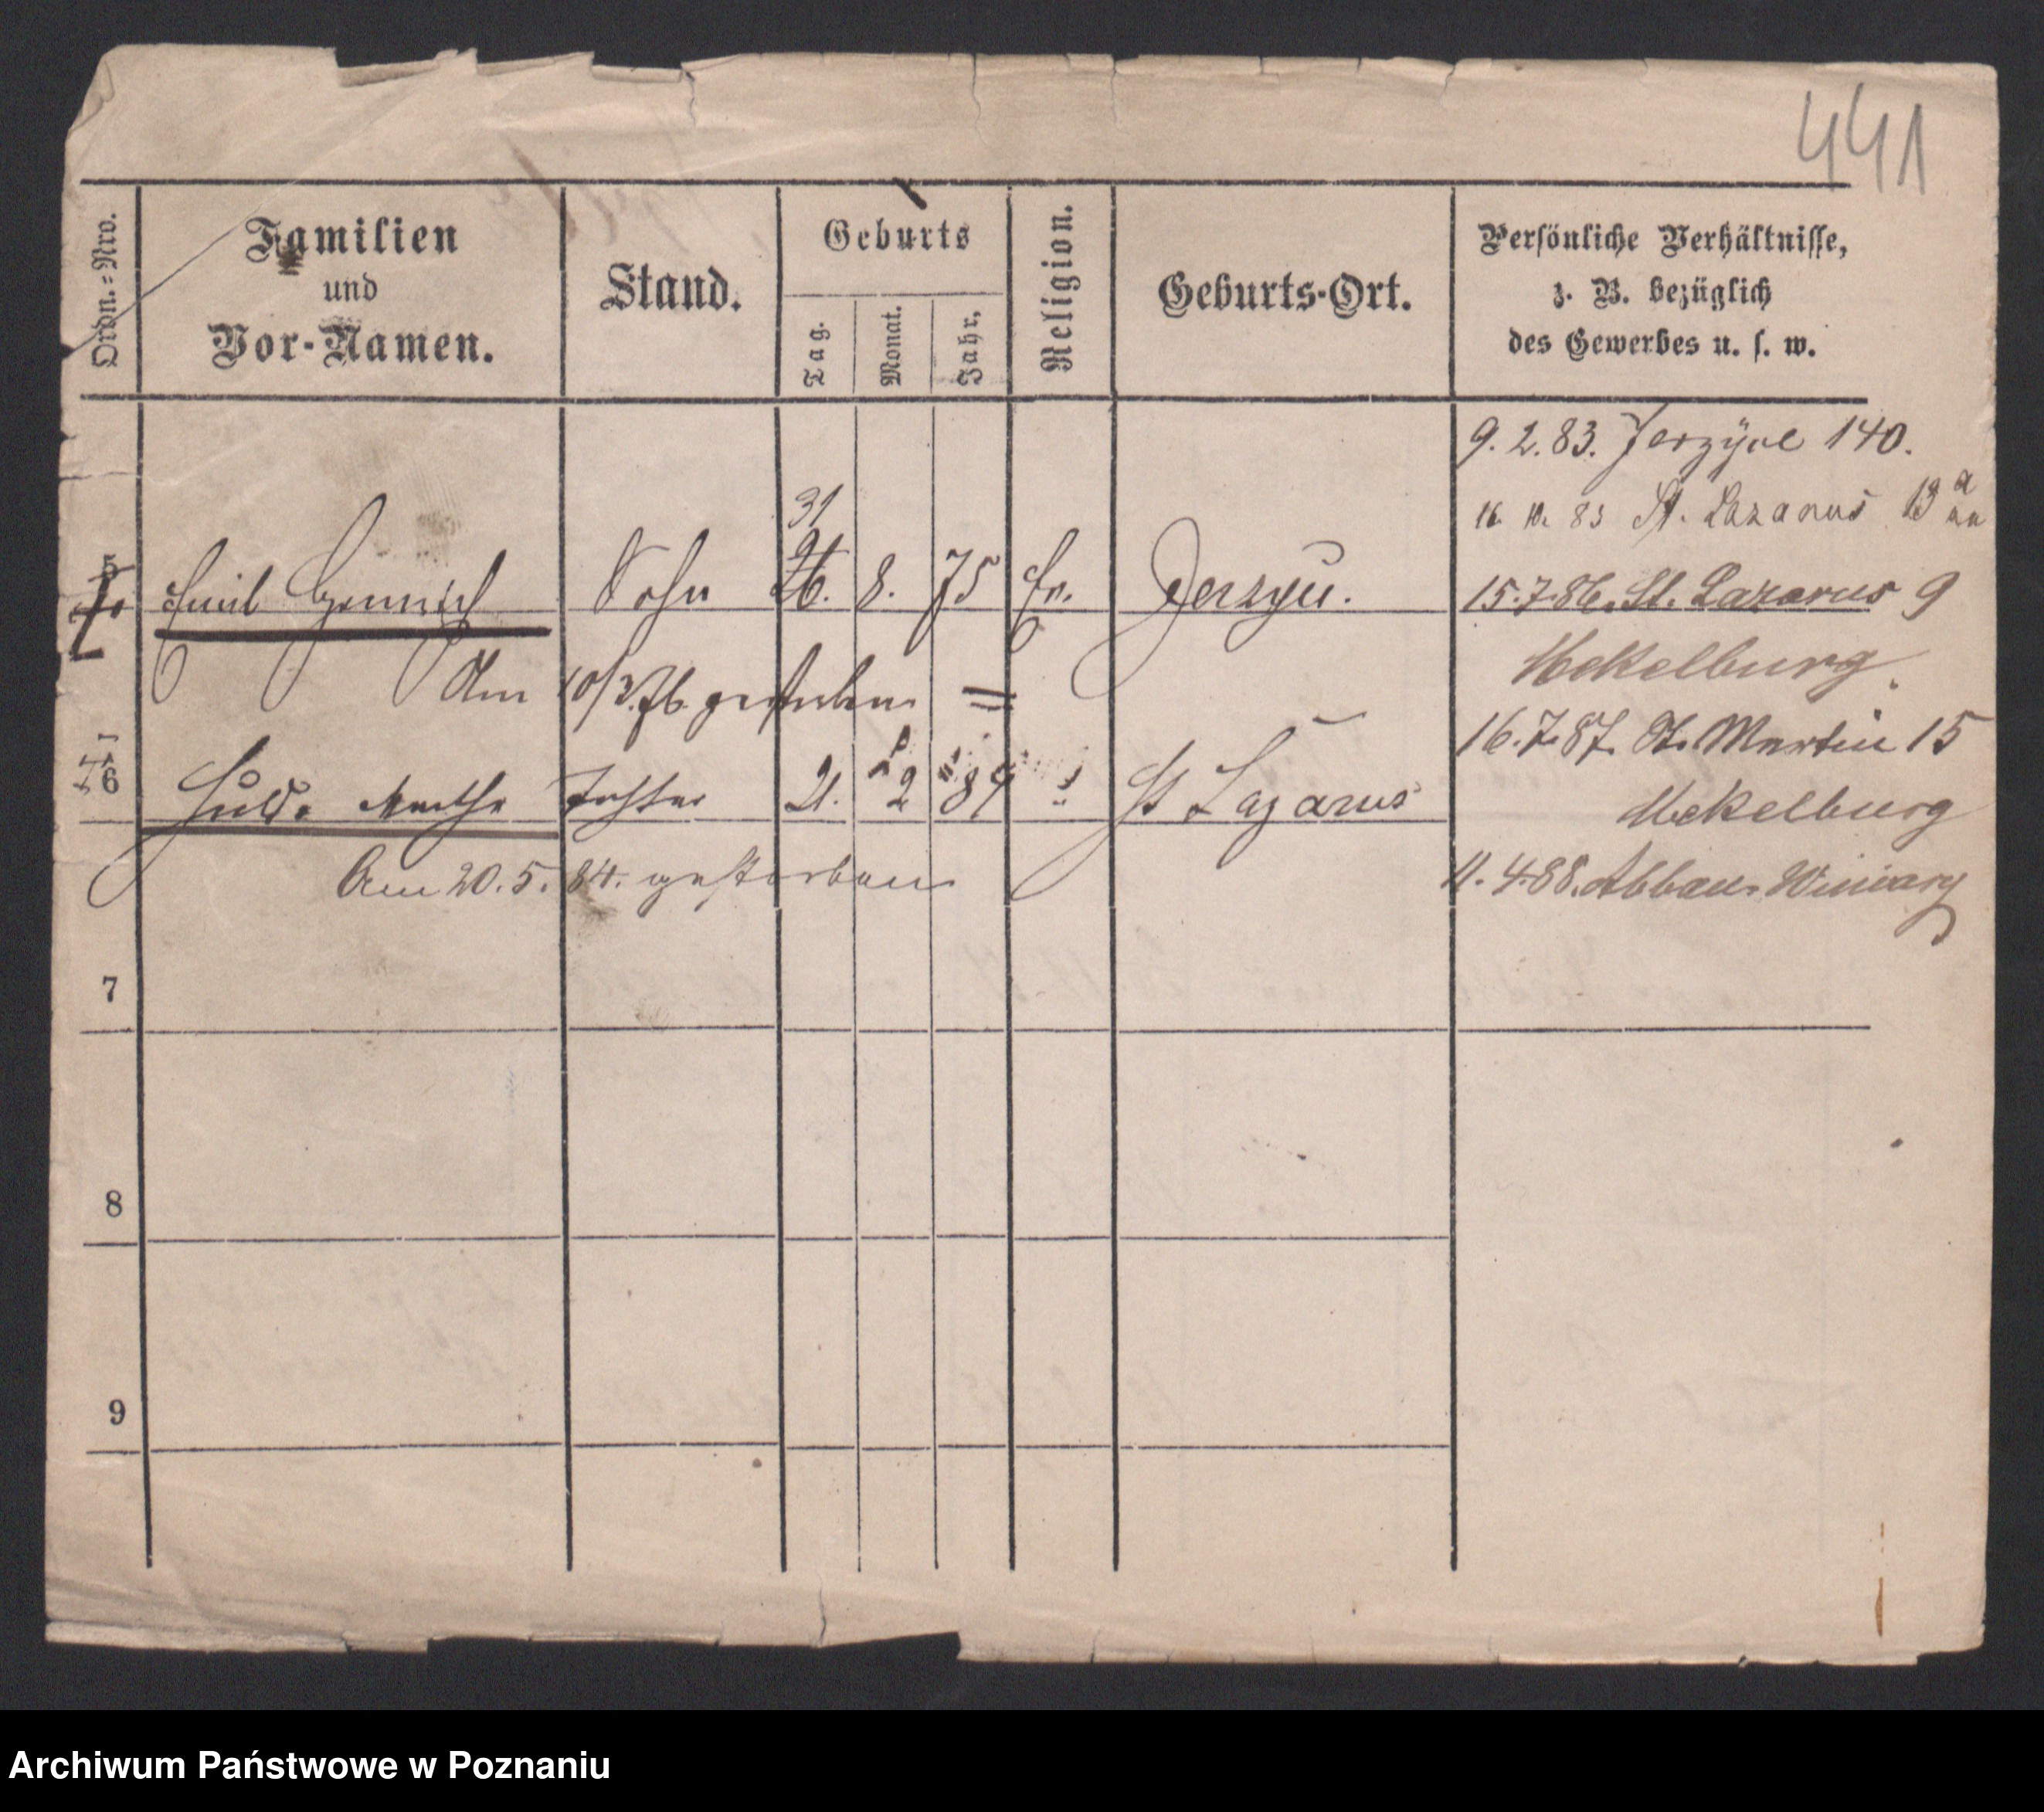 441
Ordn.=Nro.
Familien
und
Vor-Namen.
Stand.
Geburts
Tag.
Monat.
Jahr.
Religion.
Geburts-Ort.
Persönliche Verhältnisse,
z. B. bezüglich
des Gewerbes u. s. w.
9. 2. 83. Jerzyce 140.
16. 10. 83 St. Lazarus 13 a
31
5 Emil Heinrich Sohn 26. 8. 75 Ev. Jerzyce.
15.7.86. St. Lazarus 9
Mekelburg.
Am 10/3. 76. gestorben =
16.7.87. St. Martin 15
6 Hulda Martha Tochter 21. 2 84 " St Lazarus
Mekelburg
Am 20. 5. 84. gestorben
11. 4. 88. Abbau Winiary
7
8
9
Archiwum Państwowe w Poznaniu